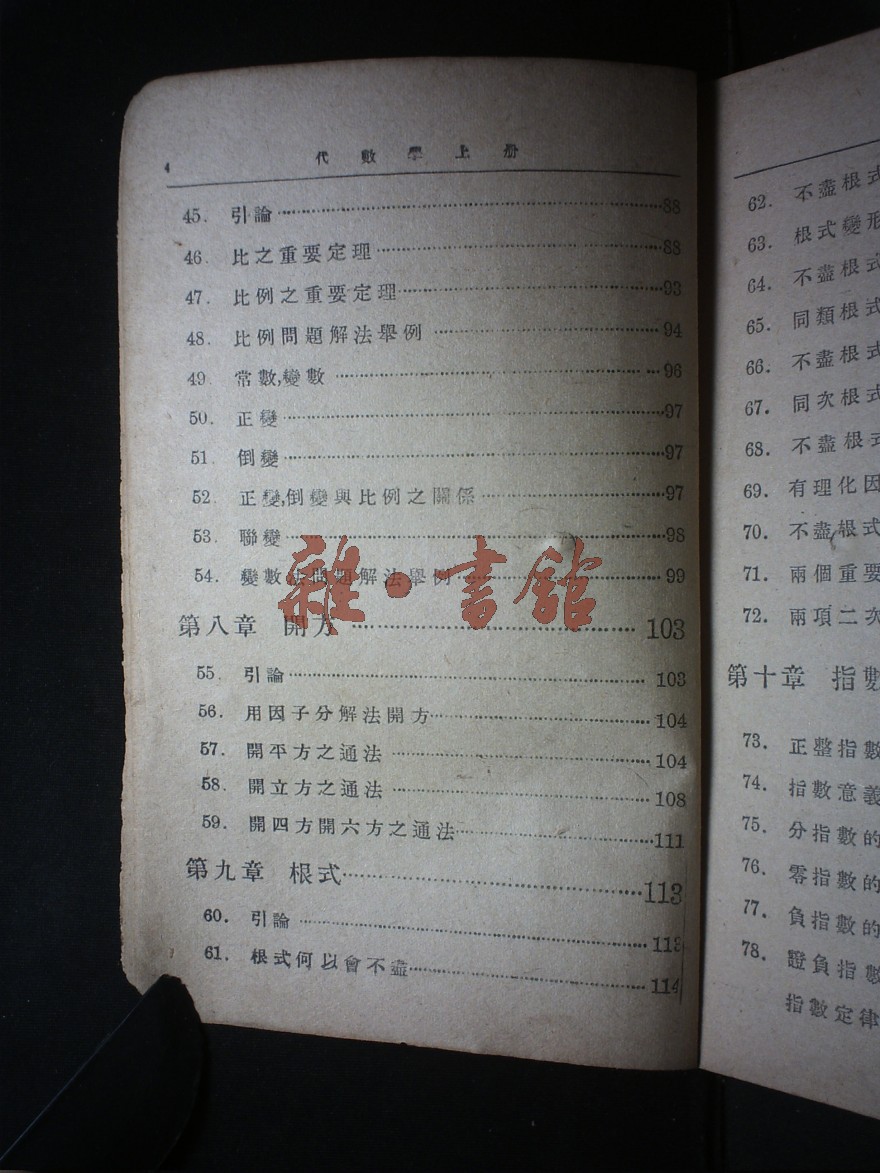 4 代數學上册
45. 引論 88
46. 比之重要定理 88
47. 比例之重要定理 93
48. 比例問題解法舉例 94
49. 常數,變數 96
50. 正變 97
51. 倒變 97
52. 正變,倒變與比例之關係 97
53. 聯變 98
54. 變數法問題解法舉例 99
第八章 開方 103
55. 引論 103
56. 用因子分解法開方 104
57. 開平方之通法 104
58. 開立方之通法 108
59. 開四方開六方之通法 111
第九章 根式 113
60. 引論 113
61. 根式何以會不盡 114
雜·書館
62. 不盡根式
63. 根式變形
64. 不盡根式
65. 同類根式
66. 不盡根式
67. 同次根式
68. 不盡根式
69. 有理化因
70. 不盡根式
71. 兩個重要
72. 兩項二次
第十章 指數
73. 正整指數
74. 指數意義
75. 分指數的
76. 零指數的
77. 負指數的
78. 證負指數
指數定律